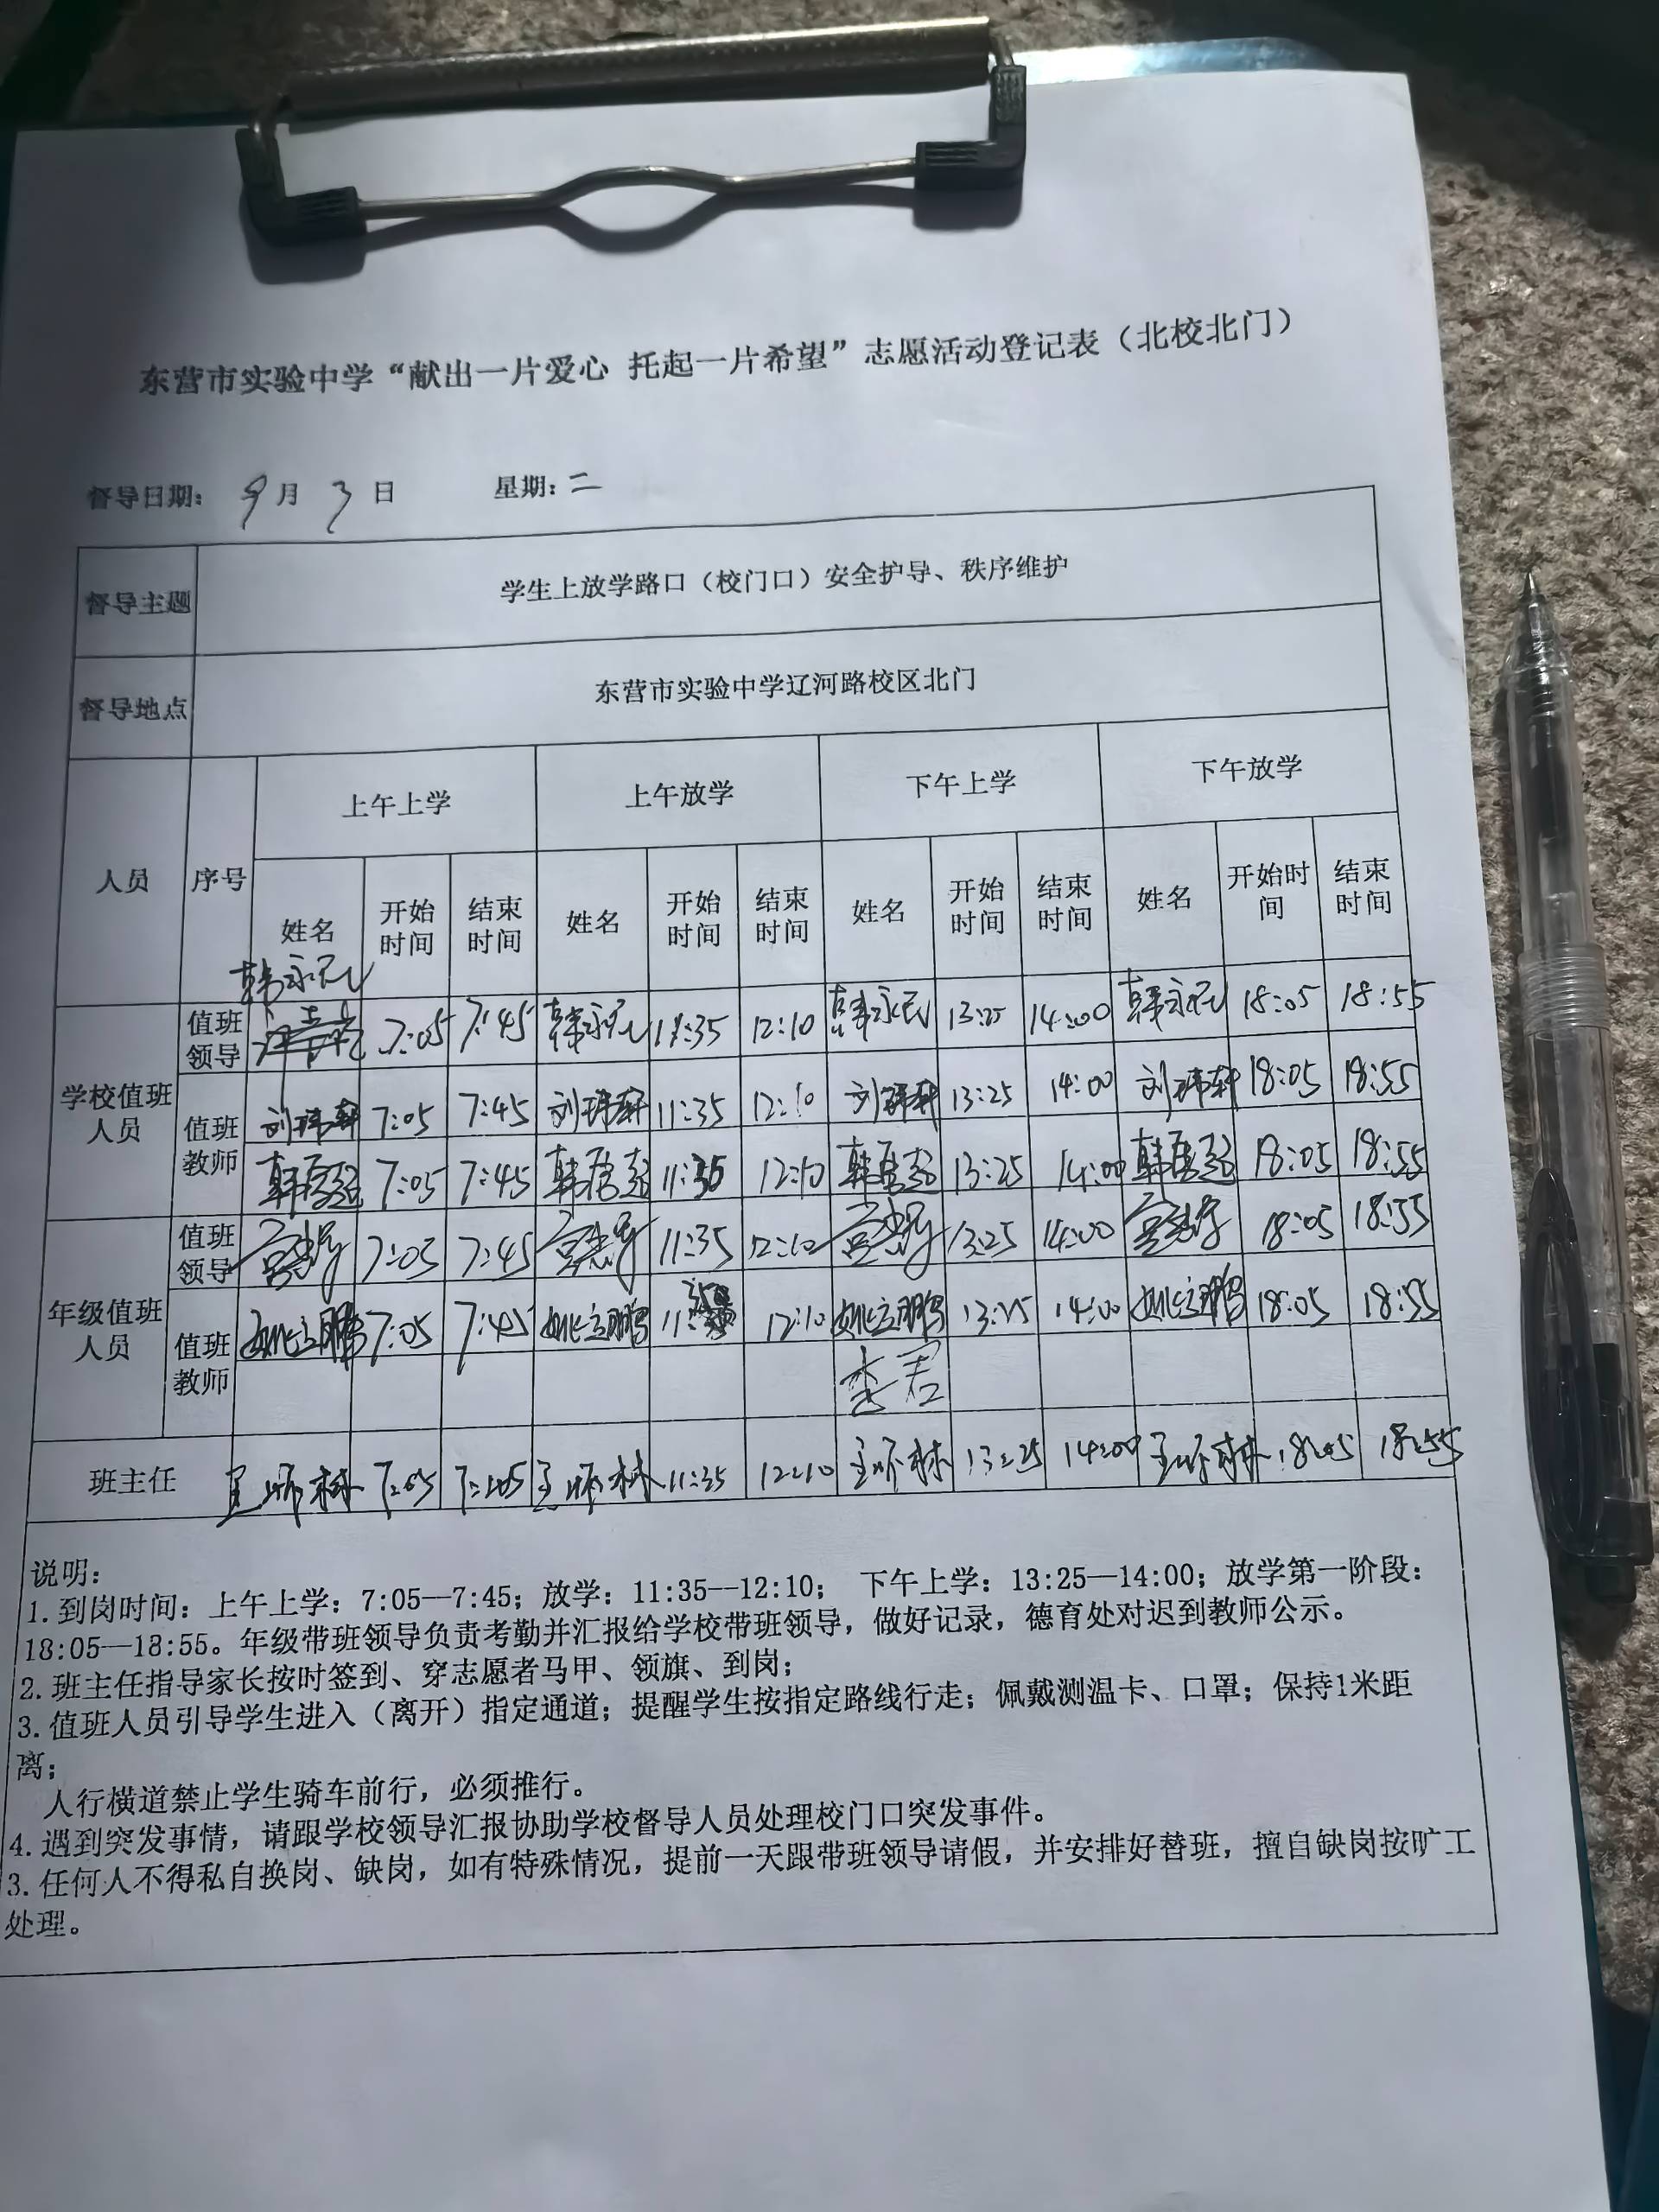 东营市实验中学“献出一片爱心 托起一片希望”志愿活动登记表（北校北门）
督导日期： 9月 3 日 星期：二
督导主题 学生上放学路口（校门口）安全护导、秩序维护
督导地点 东营市实验中学辽河路校区北门
人员 序号 上午上学 上午放学 下午上学 下午放学
姓名 开始时间 结束时间 姓名 开始时间 结束时间 姓名 开始时间 结束时间 姓名 开始时间 结束时间
学校值班人员 值班领导 韩永 7:05 7:45 韩永 11:35 12:10 韩永 13:25 14:00 韩永 18:05 18:55
值班教师 刘玮轩 7:05 7:45 刘玮轩 11:35 12:10 刘玮轩 13:25 14:00 刘玮轩 18:05 18:55
韩 7:05 7:45 韩 11:35 12:10 韩 13:25 14:00 韩 18:05 18:55
年级值班人员 值班领导 7:05 7:45 11:35 12:10 13:25 14:00 18:05 18:55
值班教师 姚立鹏 7:05 7:45 姚立鹏 11:35 12:10 姚立鹏 13:25 14:00 姚立鹏 18:05 18:55
李君
班主任 7:05 7:45 11:35 12:10 13:25 14:00 18:05 18:55
说明：
1.到岗时间：上午上学：7:05—7:45；放学：11:35—12:10； 下午上学：13:25—14:00；放学第一阶段：
18:05—18:55。年级带班领导负责考勤并汇报给学校带班领导，做好记录，德育处对迟到教师公示。
2.班主任指导家长按时签到、穿志愿者马甲、领旗、到岗；
3.值班人员引导学生进入（离开）指定通道；提醒学生按指定路线行走；佩戴测温卡、口罩；保持1米距
离；
人行横道禁止学生骑车前行，必须推行。
4.遇到突发事情，请跟学校领导汇报协助学校督导人员处理校门口突发事件。
3.任何人不得私自换岗、缺岗，如有特殊情况，提前一天跟带班领导请假，并安排好替班，擅自缺岗按旷工
处理。